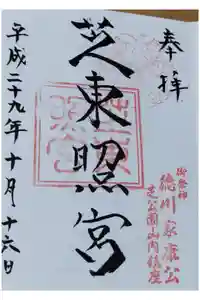 奉拝
御祭神
徳川家康公
芝公園山内鎮座
芝東照宮
芝東照宮
平成二十九年十月十六日